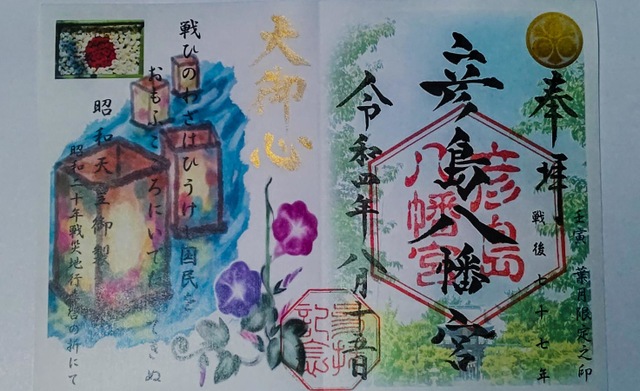 奉拝
壬寅 葉月限定之印
戦後七十七年
彦島八幡宮
彦島
八幡宮
令和四年八月十五日
参拝
記念
大御心
戦ひのわさはひうけし国民を
おもふこころにいてたちてきぬ
昭和天皇御製
昭和二十年戦災地行幸啓の折にて